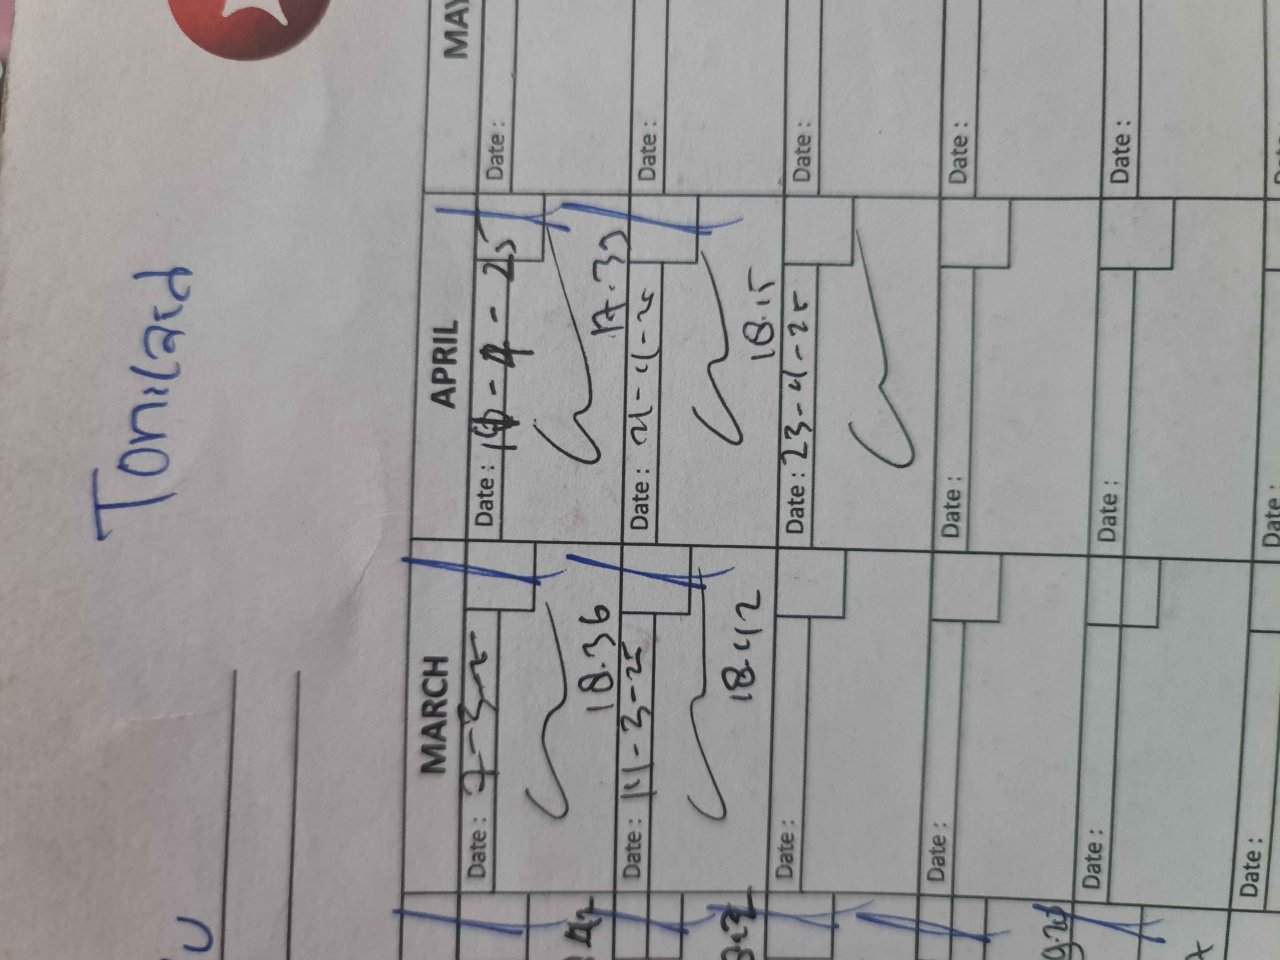 Tonicaid
MARCH
APRIL
Date : 7-3-25
18.36
Date : 14-3-25
18.42
Date :
Date :
Date :
Date :
Date : 14-4-25
17.33
Date : 21-4-25
18.15
Date : 23-4-25
Date :
Date :
Date :
Date :
Date :
Date :
Date :
Date :